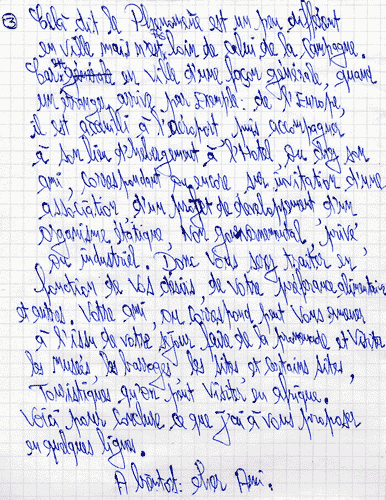 ③ Cela dit le Phénomène est un peu différent
en ville mais n'est loin de celui de la Campagne.
Car en ville d'une façon générale, quand
un étranger arrive par exemple: de l'Europe,
il est accueilli à l'aéroport puis accompagner
à son lieu d'hébergement à l'hôtel ou chez son
ami, correspondant ou encore sur invitation d'une
association, d'un projet de développement d'un
organisme étatique, Non gouvernemental, privé
ou industriel. Donc vous serez traiter en
fonction de vos désirs, de votre préférence alimentaire
et autres. Votre ami, ou correspond peut vous emmener
à l'issu de votre séjour faire de la promenade et visiter
les musées, les barrages, les sites et certains sites
Touristiques qu'on peut visiter en Afrique.
Voilà pour conclure ce que j'ai à vous proposer
en quelques lignes.
A bientôt. cher Ami.